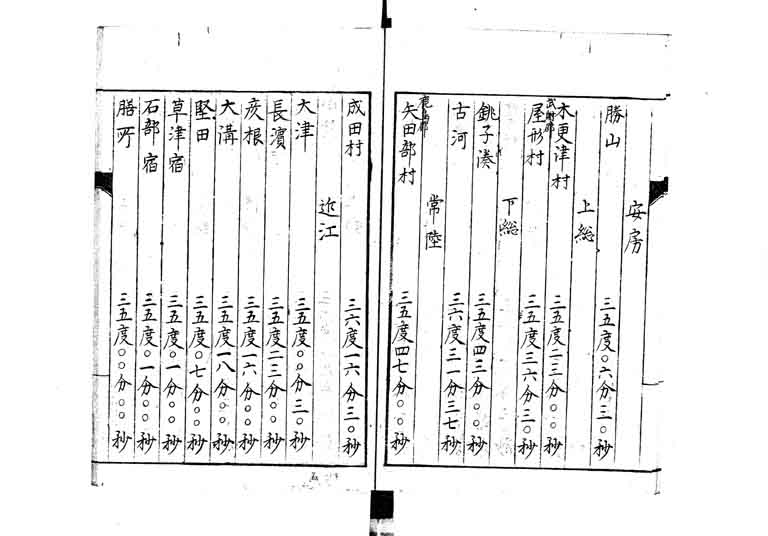 安房
勝山 三五度〇六分三〇秒
上総
木更津村 三五度二三分〇〇秒
武射郡
屋形村 三五度三六分三〇秒
下総
銚子湊 三五度四三分〇〇秒
古河 三六度一一分三七秒
常陸
鹿島郡
矢田部村 三五度四七分〇〇秒
成田村 三六度一六分三〇秒
近江
大津 三五度〇〇分三〇秒
長濱 三五度二三分〇〇秒
彦根 三五度一六分〇〇秒
大溝 三五度一八分〇〇秒
堅田 三五度〇七分〇〇秒
草津宿 三五度〇一分〇〇秒
石部宿 三五度〇一分〇〇秒
膳所 三五度〇〇分〇〇秒